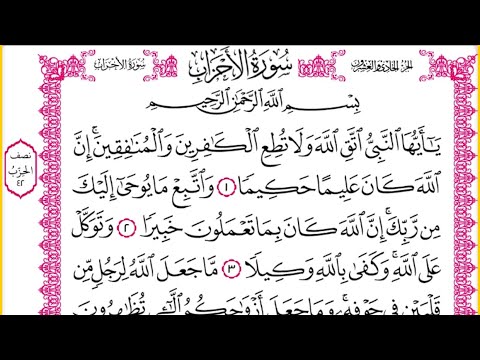 سُورَةُ الأَحْزَابِ
الجزء الحادي والعشرون
سُورَةُ الأَحْزَابِ
بِسْمِ اللَّهِ الرَّحْمَٰنِ الرَّحِيمِ
يَٰٓأَيُّهَا ٱلنَّبِيُّ ٱتَّقِ ٱللَّهَ وَلَا تُطِعِ ٱلْكَٰفِرِينَ وَٱلْمُنَٰفِقِينَۚ إِنَّ
ٱللَّهَ كَانَ عَلِيمًا حَكِيمًا ١ وَٱتَّبِعْ مَا يُوحَىٰٓ إِلَيْكَ
مِن رَّبِّكَۚ إِنَّ ٱللَّهَ كَانَ بِمَا تَعْمَلُونَ خَبِيرًا ٢ وَتَوَكَّلْ
عَلَى ٱللَّهِۚ وَكَفَىٰ بِٱللَّهِ وَكِيلًا ٣ مَّا جَعَلَ ٱللَّهُ لِرَجُلٍ مِّن
قَلْبَيْنِ فِي جَوْفِهِۦۚ وَمَا جَعَلَ أَزْوَٰجَكُمُ ٱلَّٰٓـِٔي تُظَٰهِرُونَ
نصف
الحزب
٤٢